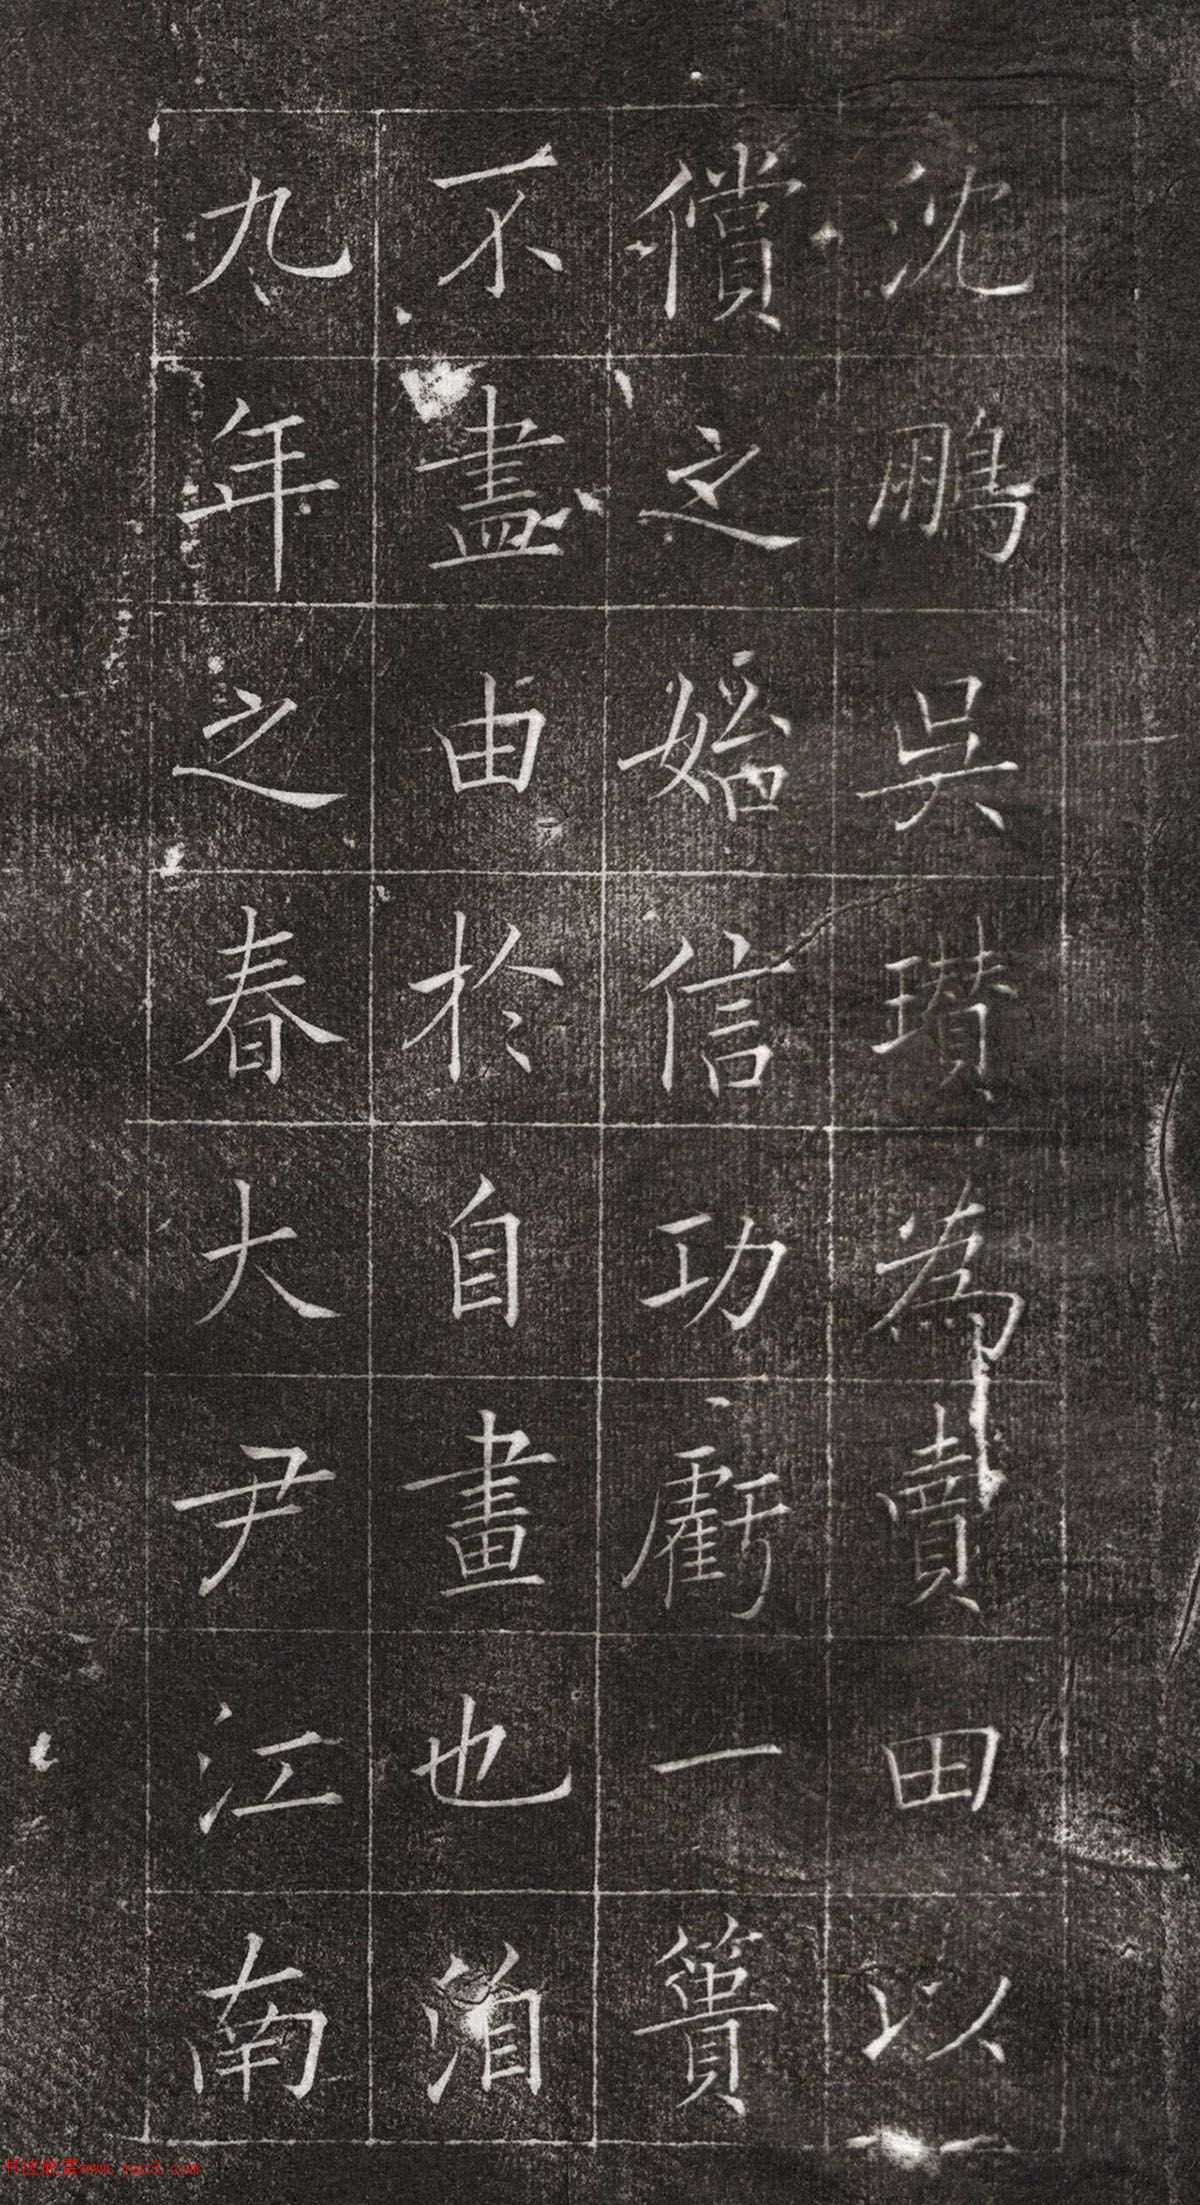 沈鵬吳瓚為賣田以
償之始信功虧一簣
不盡由於自畫也洎
九年之春大尹江南
书法欣赏www.yac8.com